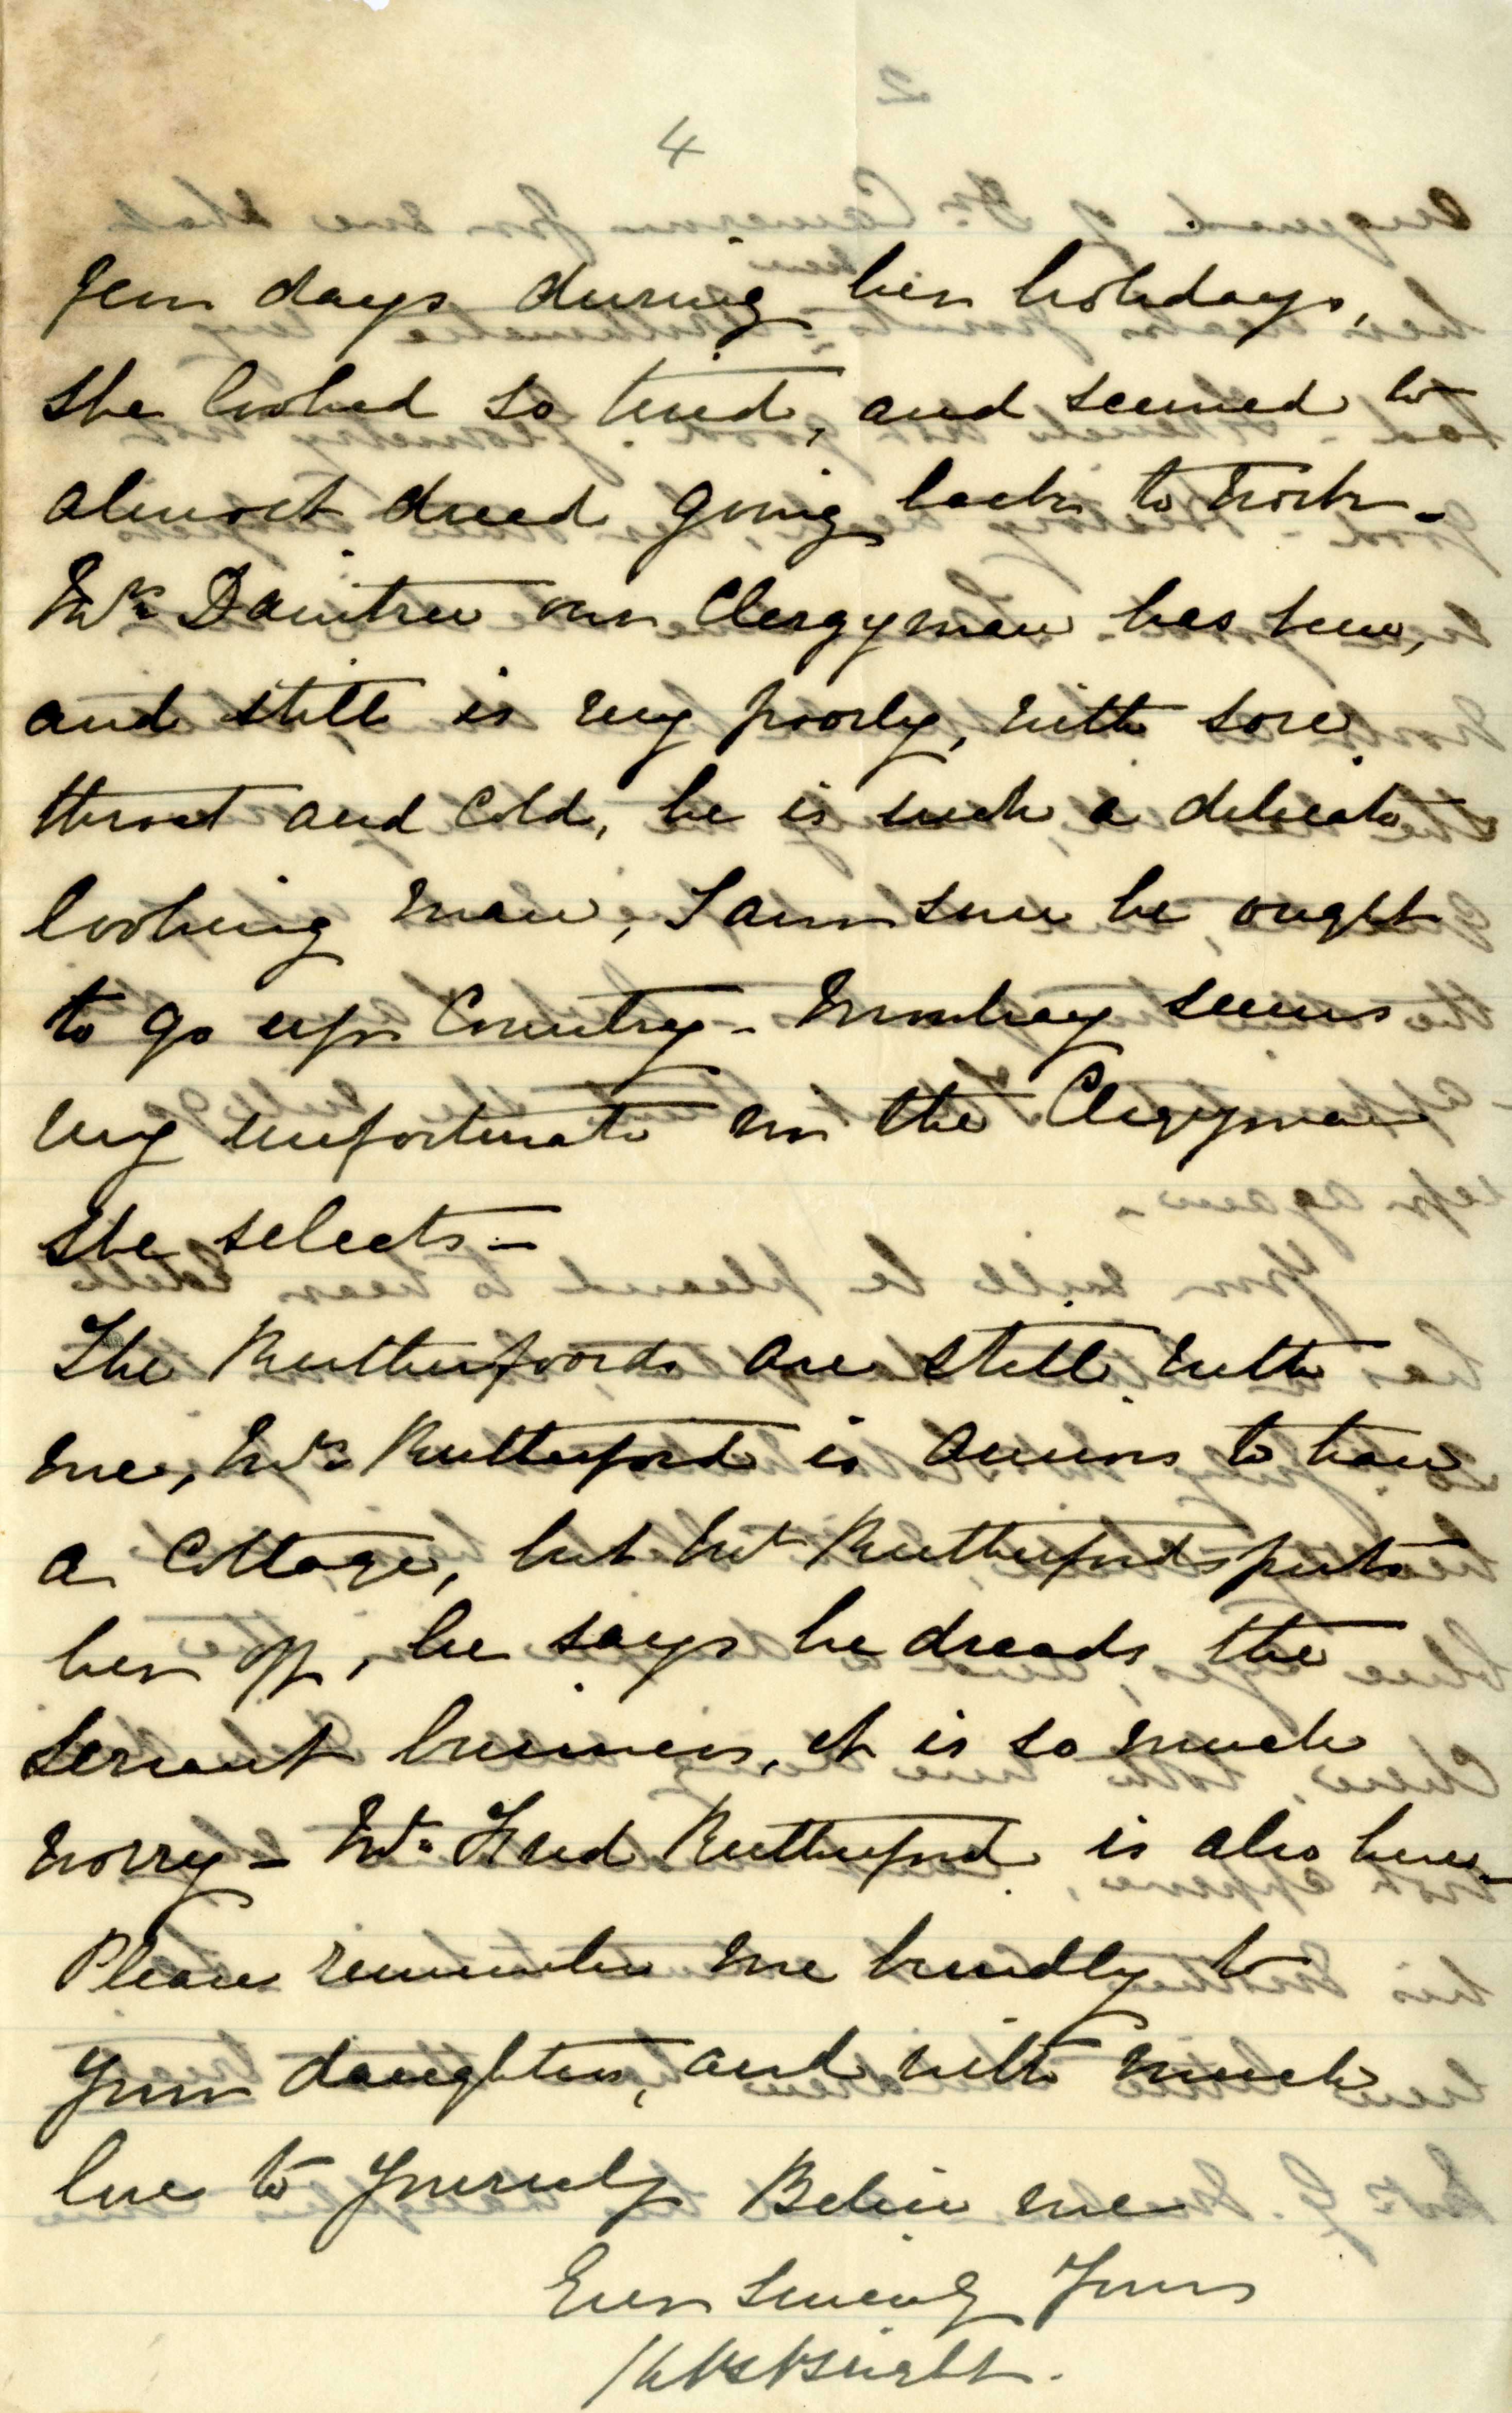 4
few days during her holidays,
she looked so tired, and seemed to
almost dread going back to work -
Mr. Daintree our Clergyman has been,
and still is very poorly, with sore
throat and cold, he is such a delicate
looking man, I am sure he ought
to go up Country - Mowbray seems
very unfortunate in the Clergyman
she selects -
The Rutherfoords are still with
me, Mrs Rutherfoord is anxious to have
a Cottage, but Mr Rutherfoord puts
her off, he says he dreads the
servant business, it is so much
worry - Mr. Fred Rutherfoord is also here -
Please remember me kindly to
your daughters, and with much
love to yourself Believe me
Ever Sincerely Yours